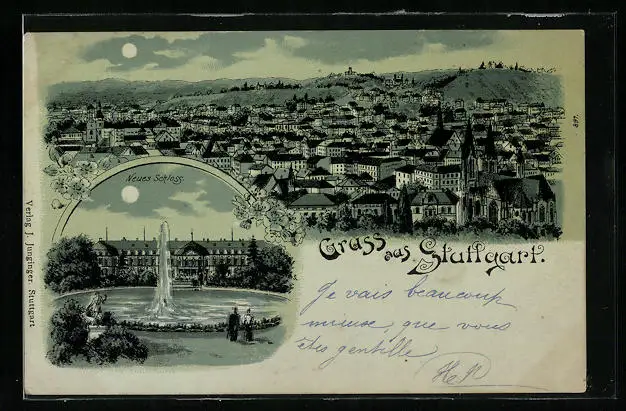 Neues Schloss.
Gruss aus Stuttgart.
Je vais beaucoup
mieuse, que vous
êtes gentille.
Verlag J. Junginger, Stuttgart